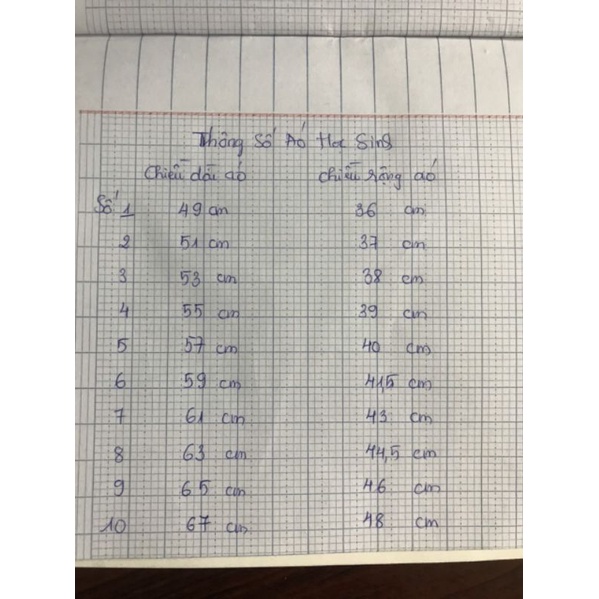 Thông Số Áo Học Sinh
Chiều dài áo chiều rộng áo
Số 1 49 cm 36 cm
2 51 cm 37 cm
3 53 cm 38 cm
4 55 cm 39 cm
5 57 cm 40 cm
6 59 cm 41,5 cm
7 61 cm 43 cm
8 63 cm 44,5 cm
9 65 cm 46 cm
10 67 cm 48 cm